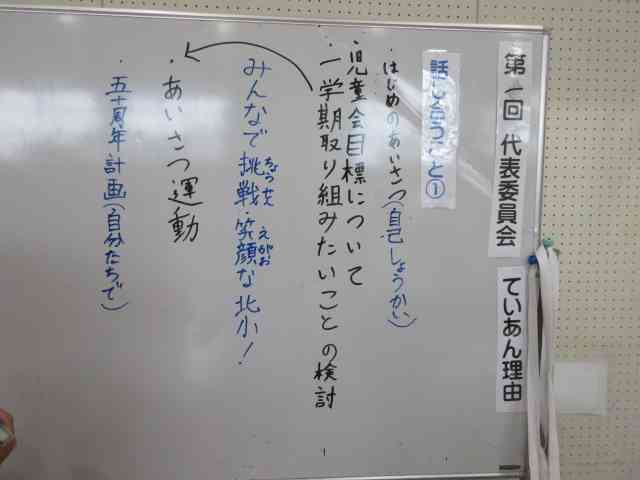 第一回 代表委員会
ていあん理由
話し合うこと①
・はじめのあいさつ(自己しょうかい)
・児童会目標について
・一学期取り組みたいことの検討
みんなで挑戦・笑顔な北小!
ちょうせん えがお
・あいさつ運動
・五十周年計画(自分たちで)